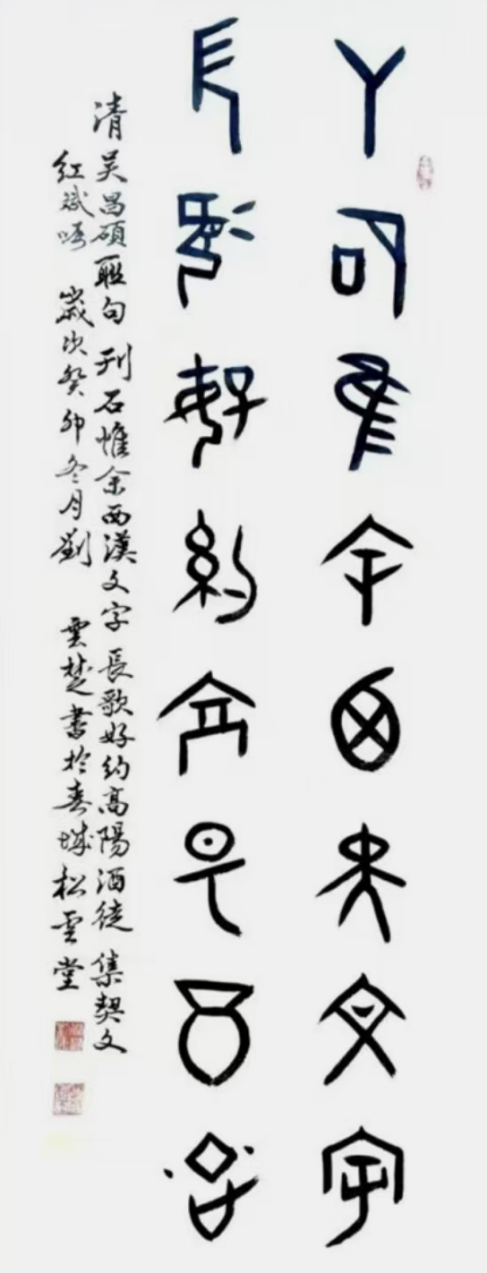 刊石惟余西漢文字
長歌好約高陽酒徒
清吴昌碩聯句 刊石惟余西漢文字 長歌好約高陽酒徒 集契文
紅斌嘱 歲次癸卯冬月劉 雲楚書於春城松雲堂